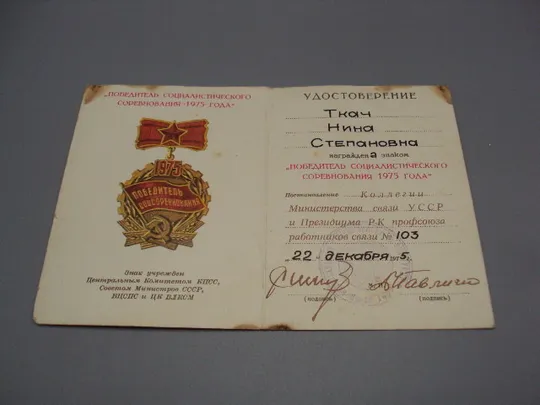 "ПОБЕДИТЕЛЬ СОЦИАЛИСТИЧЕСКОГО
СОРЕВНОВАНИЯ 1975 ГОДА"
1975
ПОБЕДИТЕЛЬ
СОЦСОРЕВНОВАНИЯ
Знак учрежден
Центральным Комитетом КПСС,
Советом Министров СССР,
ВЦСПС и ЦК ВЛКСМ
УДОСТОВЕРЕНИЕ
Ткач
Нина
Степановна
награжден а знаком
"ПОБЕДИТЕЛЬ СОЦИАЛИСТИЧЕСКОГО
СОРЕВНОВАНИЯ 1975 ГОДА"
Постановление Коллегии
Министерства связи УССР
и Президиума Р-К профсоюза
работников связи № 103
22 декабря 1975
(подпись) (подпись)